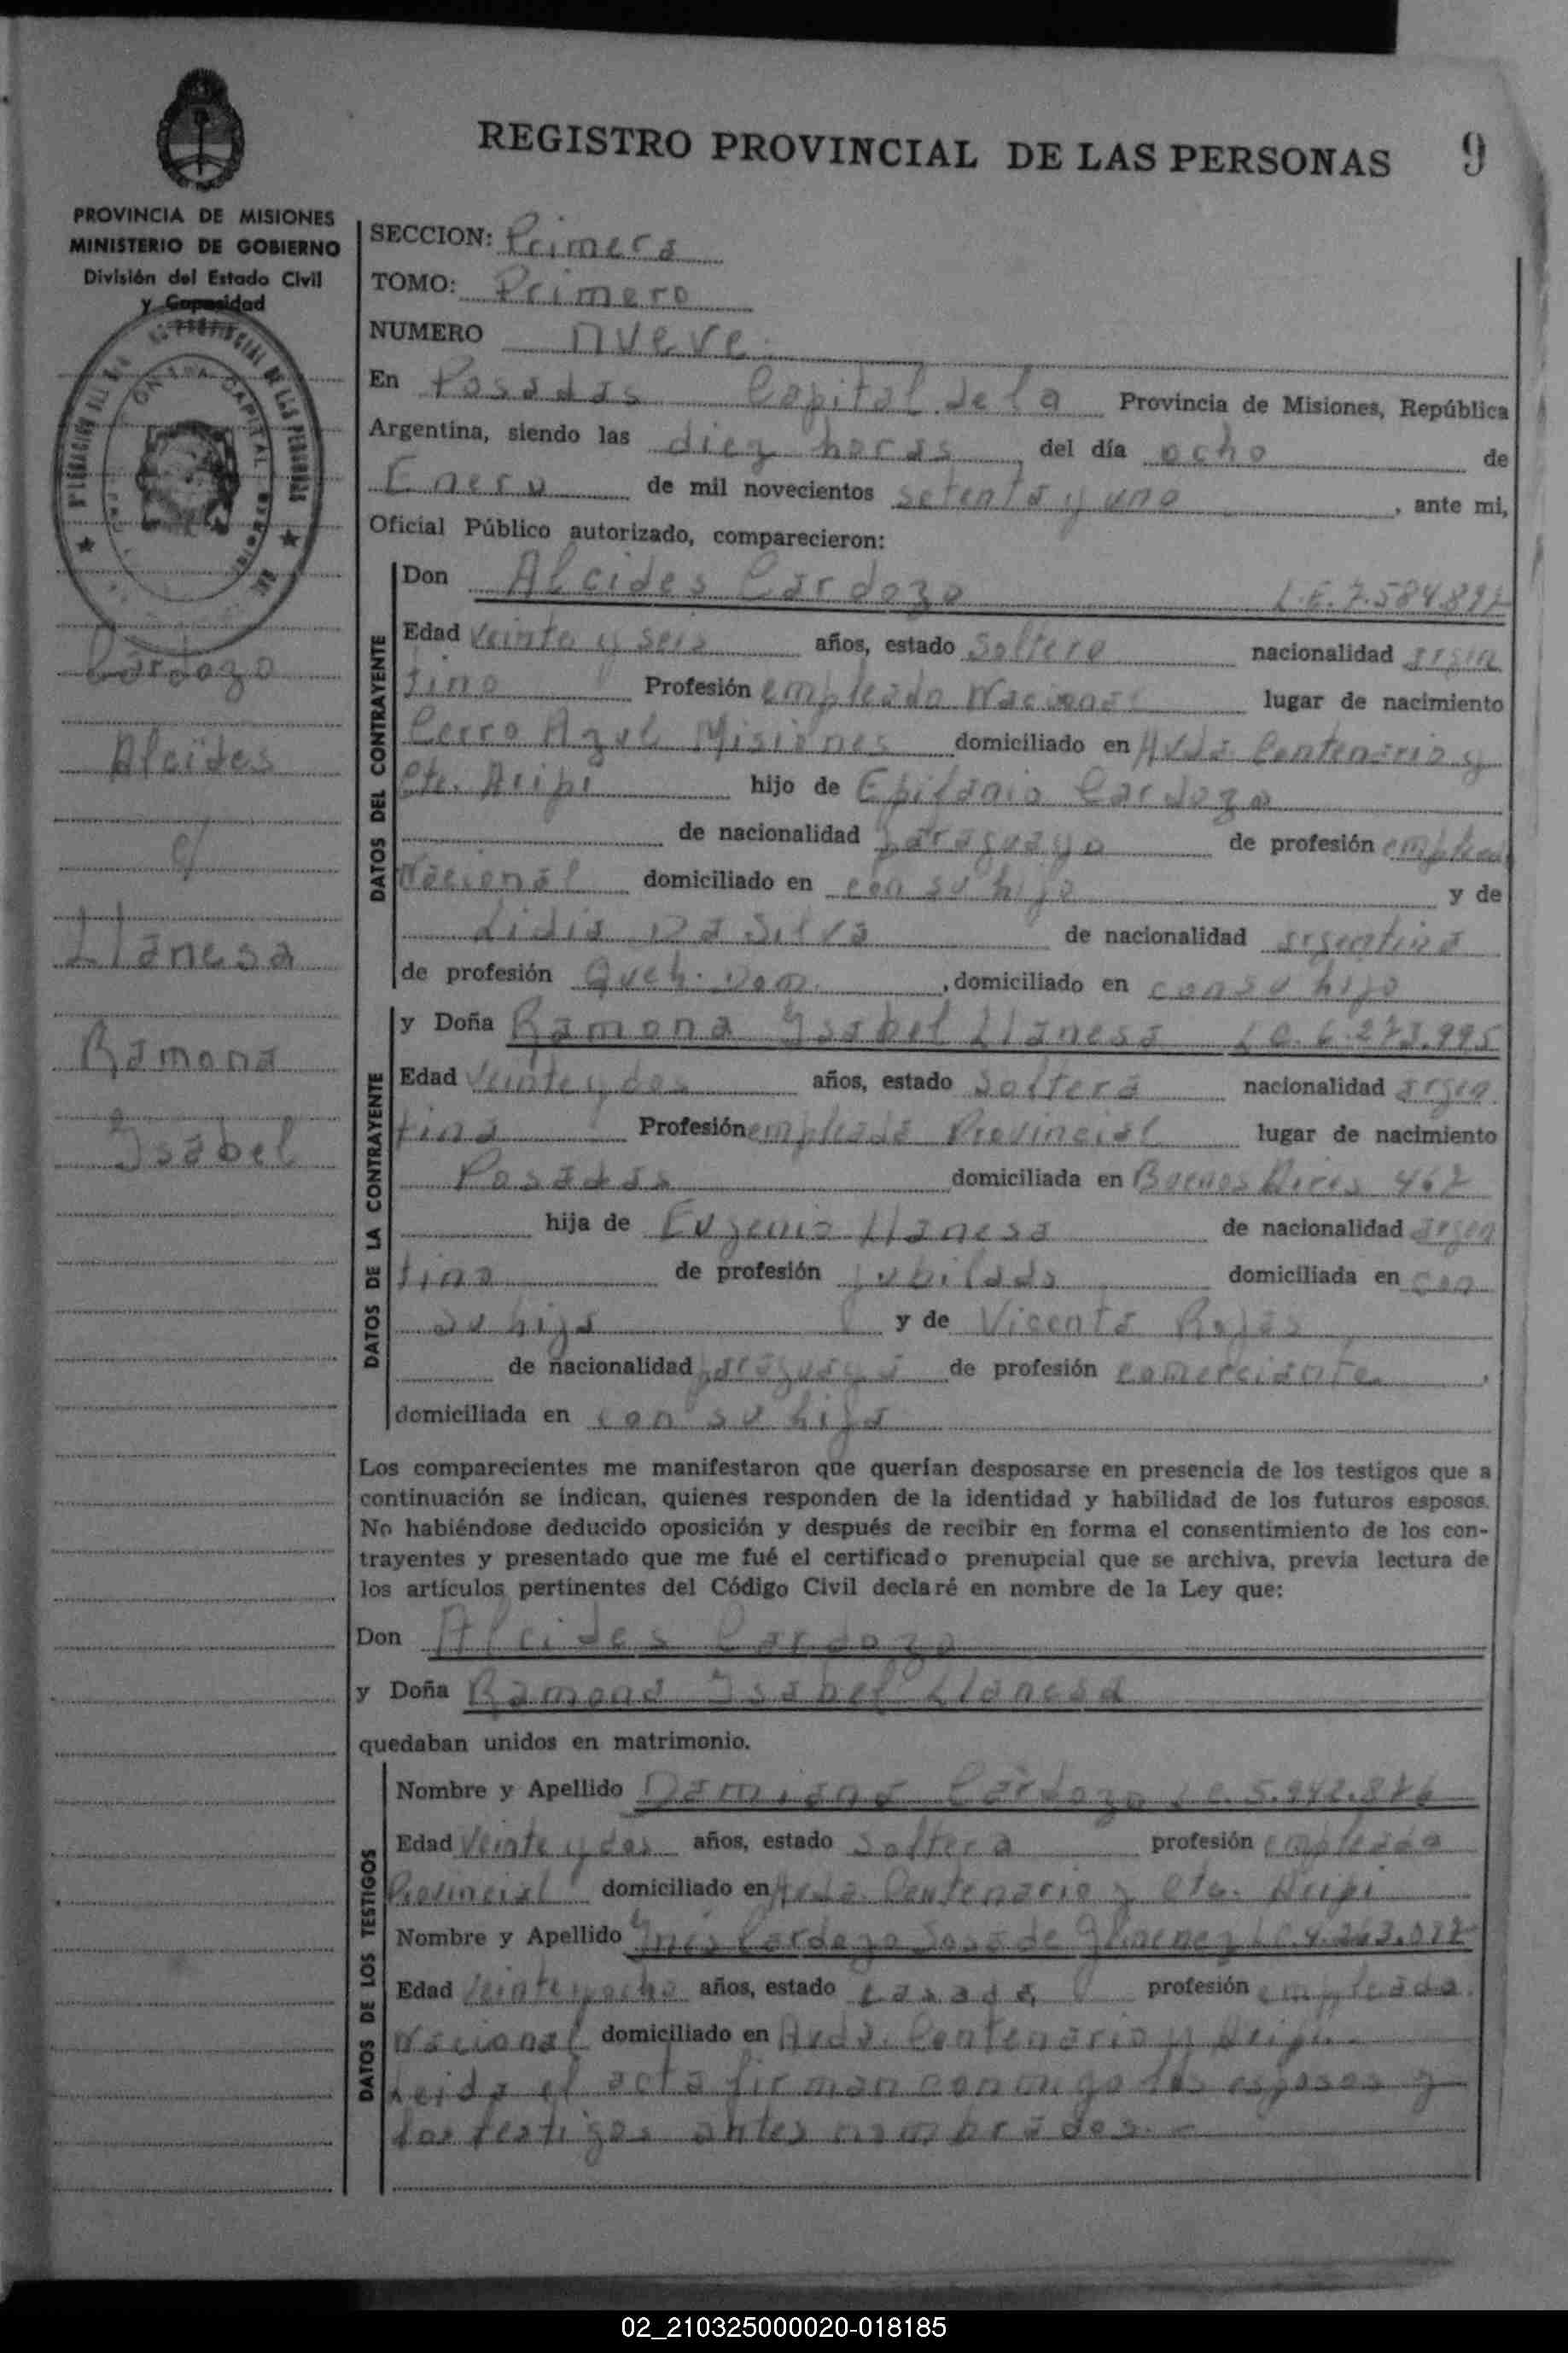 REGISTRO PROVINCIAL DE LAS PERSONAS 9
PROVINCIA DE MISIONES
MINISTERIO DE GOBIERNO
División del Estado Civil
y Capacidad
Cardozo
Alcides
c/
Llanesa
Ramona
Ysabel
SECCION: Primera
TOMO: Primero
NUMERO nueve
En Posadas Capital de la Provincia de Misiones, República
Argentina, siendo las diez horas, del día ocho de
Enero de mil novecientos setenta y uno, ante mi,
Oficial Público autorizado, comparecieron:
DATOS DEL CONTRAYENTE
Don Alcides Cardozo L.E.
Edad veinte y seis años, estado soltero nacionalidad argen
tino Profesión empleado Nacional lugar de nacimiento
Cerro Azul Misiones domiciliado en Avda Centenario y
Cte. hijo de Epifanio Cardozo
de nacionalidad paraguayo de profesión emplead
Nacional domiciliado en con su hijo y de
Lidia Da Silva de nacionalidad argentina
de profesión Queh. Dom., domiciliado en con su hijo
DATOS DE LA CONTRAYENTE
y Doña Ramona Ysabel Llanesa
Edad veinte y dos años, estado soltera nacionalidad argen
tina Profesión empleada Provincial lugar de nacimiento
Posadas domiciliada en Buenos Aires
hija de Eugenio Llanesa de nacionalidad argen
tino de profesión jubilado domiciliada en con
su hija y de Vicenta Rojas
de nacionalidad paraguaya de profesión comerciante,
domiciliada en con su hija
Los comparecientes me manifestaron que querían desposarse en presencia de los testigos que a
continuación se indican, quienes responden de la identidad y habilidad de los futuros esposos.
No habiéndose deducido oposición y después de recibir en forma el consentimiento de los con-
trayentes y presentado que me fué el certificado prenupcial que se archiva, previa lectura de
los artículos pertinentes del Código Civil declaré en nombre de la Ley que:
Don Alcides Cardozo
y Doña Ramona Ysabel Llanesa
quedaban unidos en matrimonio.
DATOS DE LOS TESTIGOS
Nombre y Apellido Damiana Cardozo
Edad veinte y dos años, estado soltera profesión empleada
Provincial domiciliado en Avda. Centenario y Cte.
Nombre y Apellido Ynés Cardozo Sosa de Gimenez
Edad veinte y ocho años, estado casada profesión empleada
Nacional domiciliado en Avda. Centenario y
Leida el acta firman conmigo los esposos y
los testigos antes nombrados.-
02_210325000020-018185